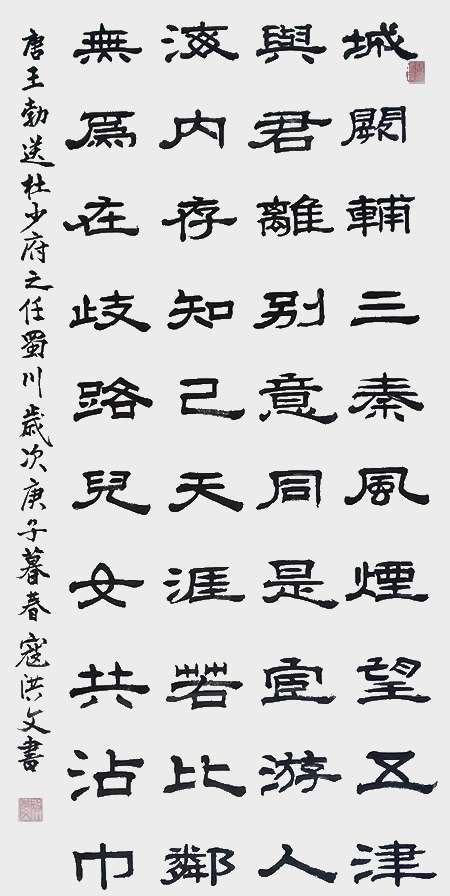 城闕輔三秦風煙望五津
與君離别意同是宦游人
海内存知己天涯若比鄰
無爲在歧路兒女共沾巾
唐王勃送杜少府之任蜀川歲次庚子暮春寇洪文書